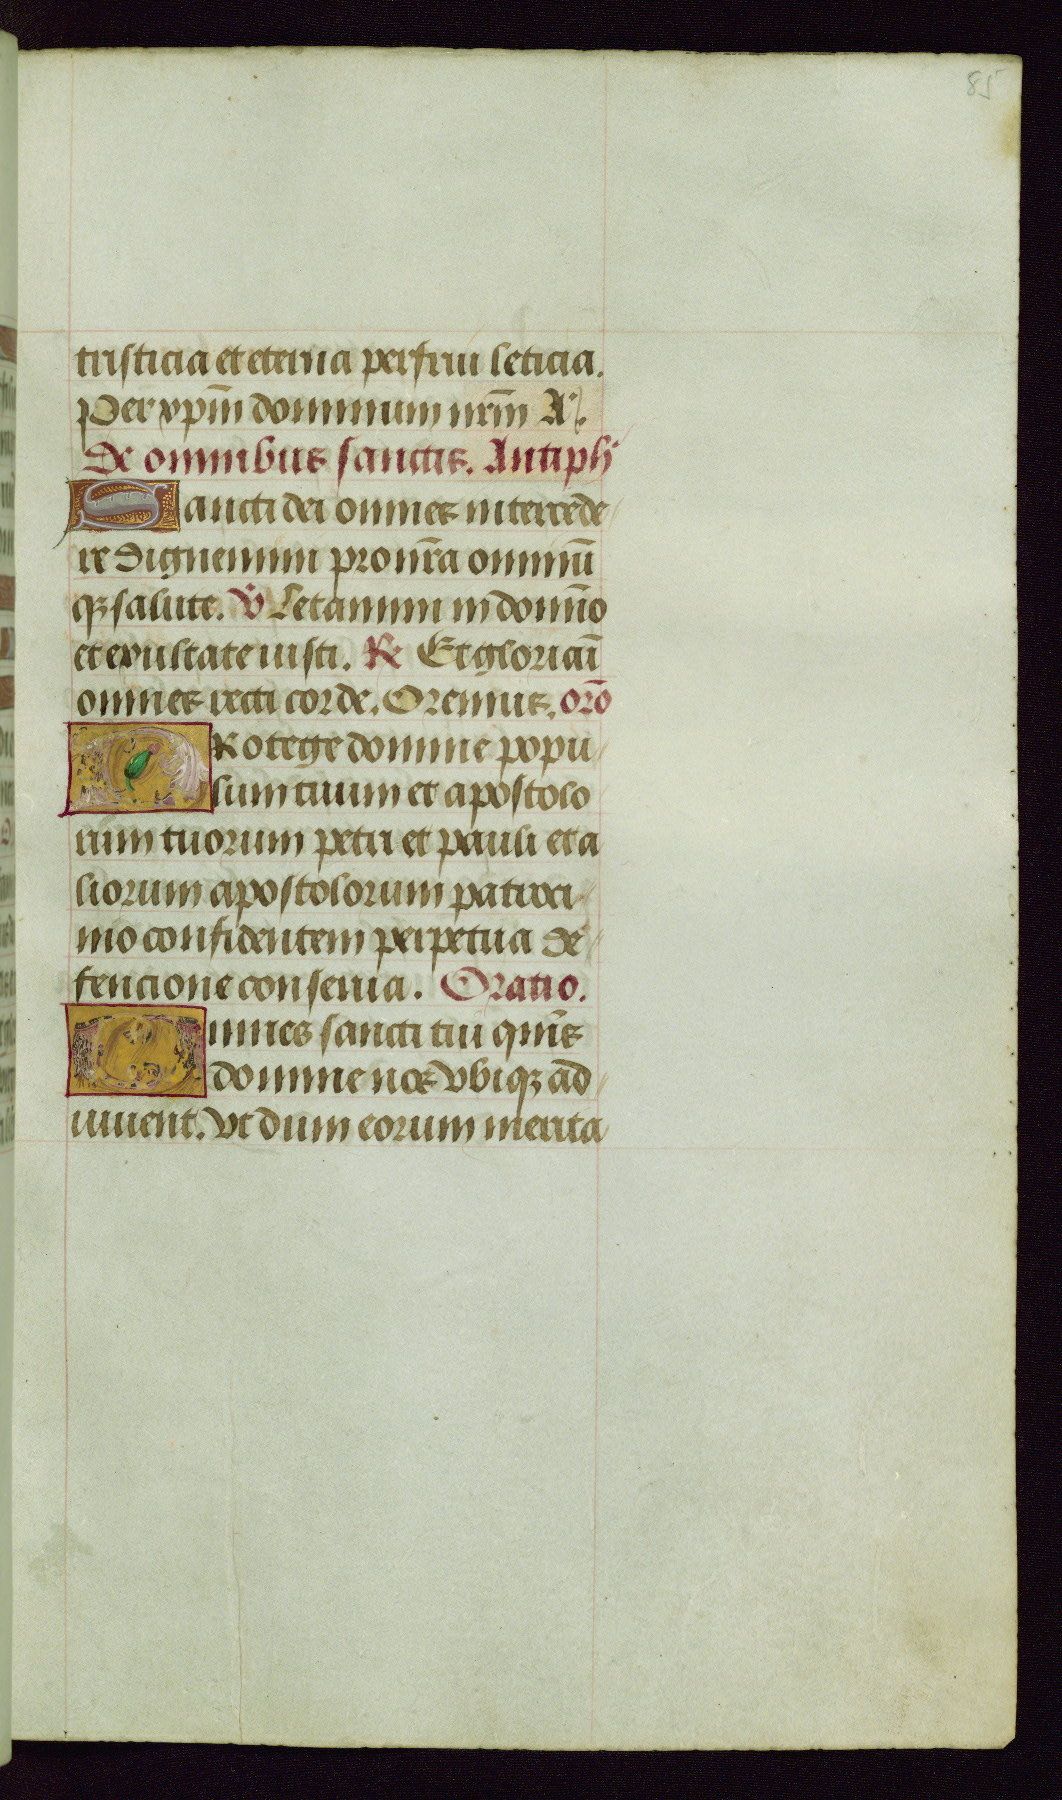 85
tristicia et eterna perfrui leticia.
Per xp̄m dominum nr̄m A.
De omnibus sanctis. Antiph
Sancti dei omnes intercede
re dignemini pro nr̄a omniū
qꝫ salute. V̄ Letamini in domīo
et exultate iusti. ℟ Et gloriaī
omnes recti corde. Oremus. orō
PRotege domine popu
lum tuum et apostolo
rum tuorum petri et pauli et a
liorum apostolorum patroci
nio confidentem perpetua de
fencione conserua. Oratio.
Omnes sancti tui quīs
domine nos vbiqꝫ ad
iuuent. vt dum eorum merita